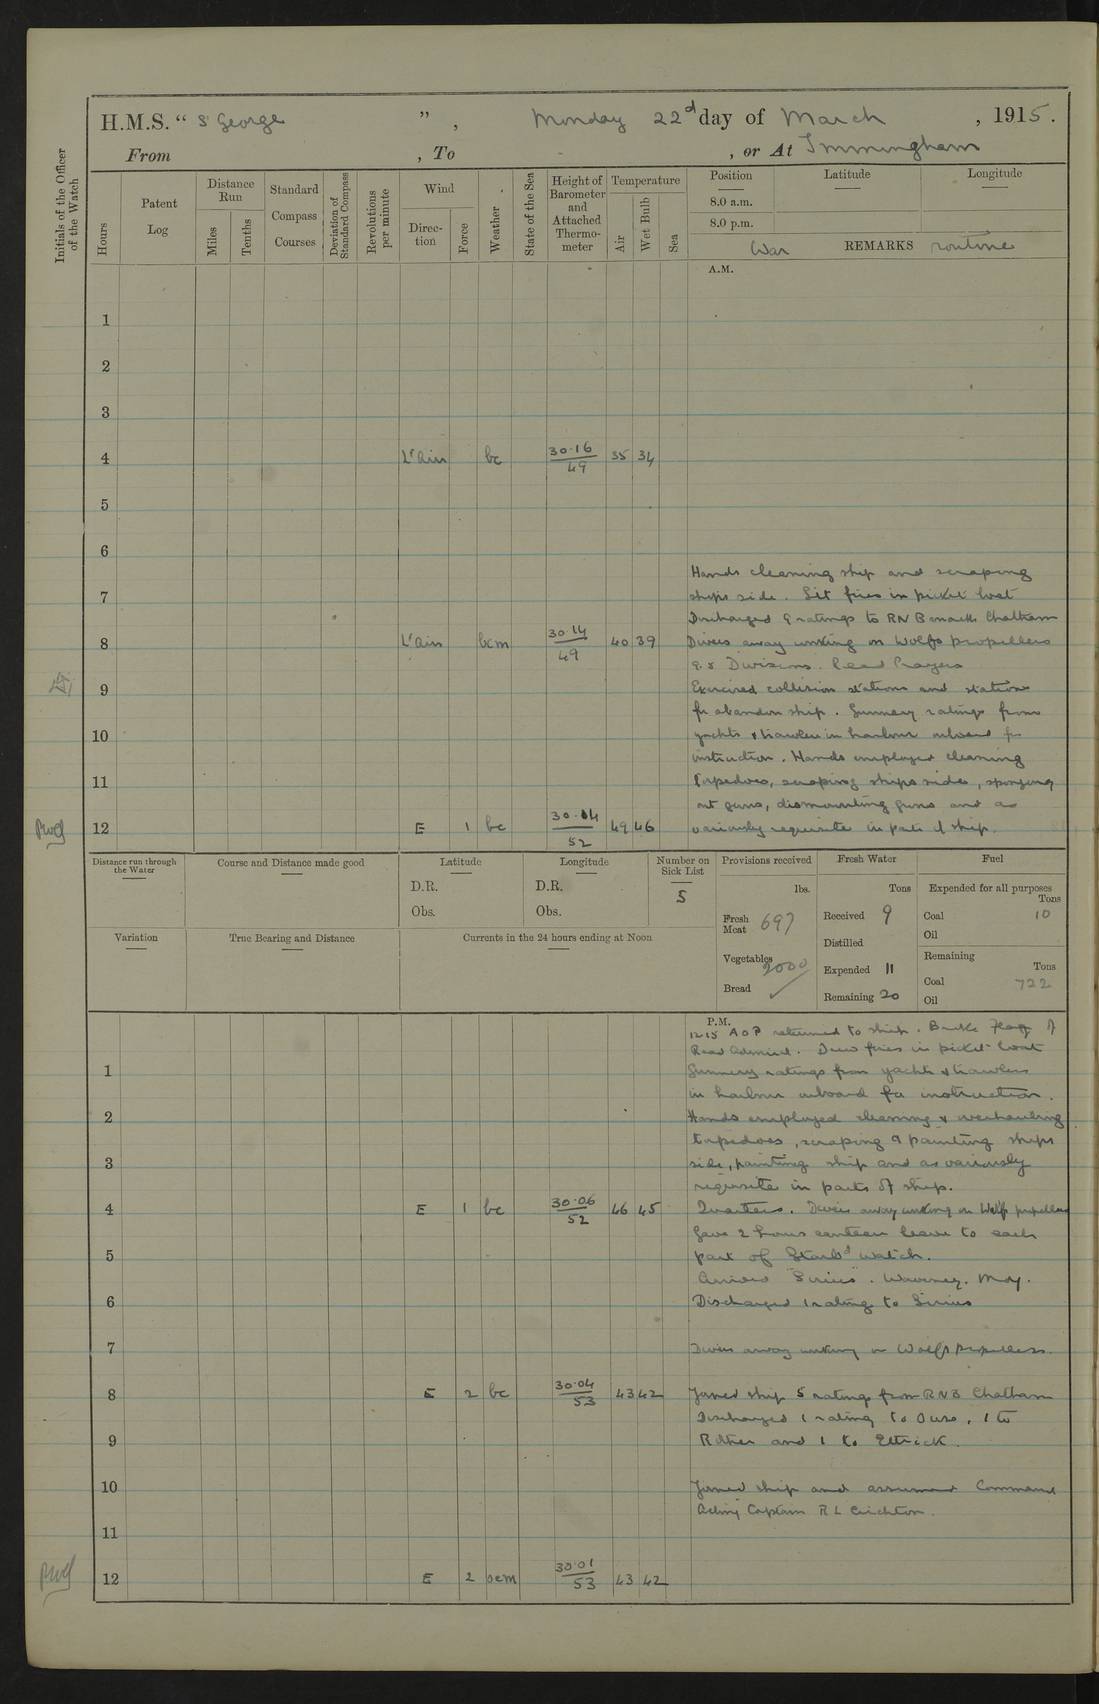 H.M.S. “ St George ” , Monday 22d day of March , 1915.
From , To , or At Immingham
Initials of the Officer of the Watch
Hours
Patent Log
Distance Run
Miles
Tenths
Standard Compass Courses
Deviation of Standard Compass
Revolutions per minute
Wind
Direction
Force
Weather
State of the Sea
Height of Barometer and Attached Thermometer
Temperature
Air
Wet Bulb
Sea
Position Latitude Longitude
8.0 a.m.
8.0 p.m.
War REMARKS routine
A.M.
1
2
3
4 Lt airs bc 30.16/49 35 34
5
6
Hands cleaning ship and scraping
7 ships side. Lit fires in picket boat
Discharged 9 ratings to RN Barracks Chatham
8 Lt airs bcm 30.14/49 40 39 Divers away working on Wolfs propellers
9.5 Divisions. Read Prayers
9 Exercised collision stations and stations
for abandon ship. Gunnery ratings from
10 yachts & trawlers in harbour onboard for
instruction. Hands employed cleaning
11 torpedoes, scraping ships sides, sponging
out guns, dismounting guns and as
12 E 1 bc 30.04/52 49 46 variously requisite in parts of ship.
Distance run through the Water
Course and Distance made good
Latitude
D.R.
Obs.
Longitude
D.R.
Obs.
Number on Sick List
5
Provisions received
lbs.
Fresh Meat 697
Vegetables 2000
Bread ✓
Fresh Water
Tons
Received 9
Distilled
Expended 11
Remaining 20
Fuel
Expended for all purposes
Tons
Coal 10
Oil
Remaining
Tons
Coal 722
Oil
Variation
True Bearing and Distance
Currents in the 24 hours ending at Noon
P.M.
12.15 AOP returned to ship. Broke Flag of
Rear Admiral. Drew fires in picket boat
1 Gunnery ratings from yachts & trawlers
in harbour onboard for instruction.
2 Hands employed cleaning & overhauling
torpedoes, scraping & painting ships
3 side, painting ship and as variously
requisite in parts of ship.
4 E 1 bc 30.06/52 46 45 Quarters. Divers away working on Wolfs propellers
Gave 2 hours canteen leave to each
5 part of Starbd watch.
Arrived "Sirius". Waveney. Moy.
6 Discharged 1 rating to Sirius
7 Divers away working on Wolfs propellers.
8 E 2 bc 30.04/53 43 42 Joined ship 5 ratings from RNB Chatham
Discharged 1 rating to Ouse, 1 to
9 Rother and 1 to Ettrick.
10 Joined ship and assumed Command
Acting Captain R L Crichton.
11
12 E 2 ocm 30.01/53 43 42